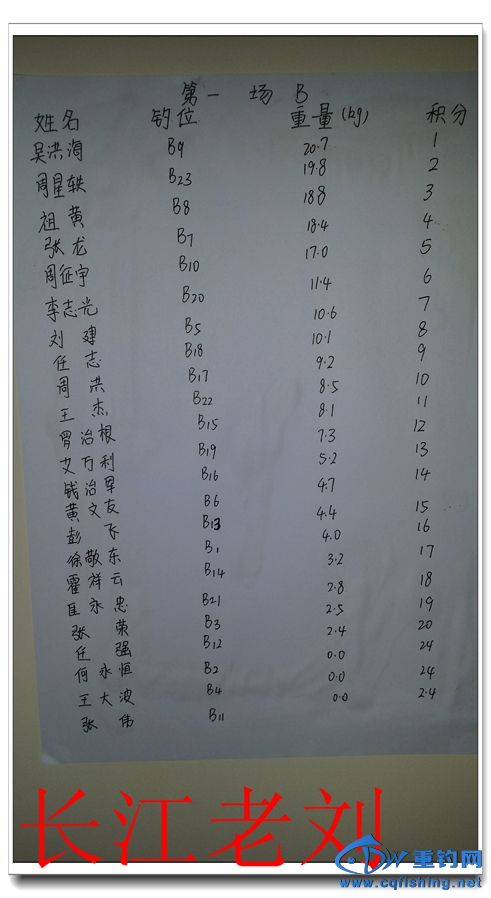 第一场 B
姓名 钓位 重量(kg) 积分
吴洪海 B9 20.7 1
周星轶 B23 19.8 2
祖黄 B8 18.8 3
张龙 B7 18.4 4
周征宇 B10 17.0 5
李志光 B20 11.4 6
刘建 B5 10.6 7
任志 B18 10.1 8
周洪 B17 9.2 9
王杰 B22 8.5 10
治根 B15 8.1 11
艾万利 B19 7.3 12
钱治军 B16 5.2 13
黄文友 B6 4.7 14
彭飞 B13 4.4 15
徐敬东 B1 4.0 16
霍祥云 B14 3.2 17
匡永忠 B21 2.8 18
张荣 B3 2.5 19
任强 B12 2.4 20
何永恒 B2 0.0 24
王大波 B4 0.0 24
张伟 B11 0.0 2.4
长江老刘
重钓网
www.cqfishing.net